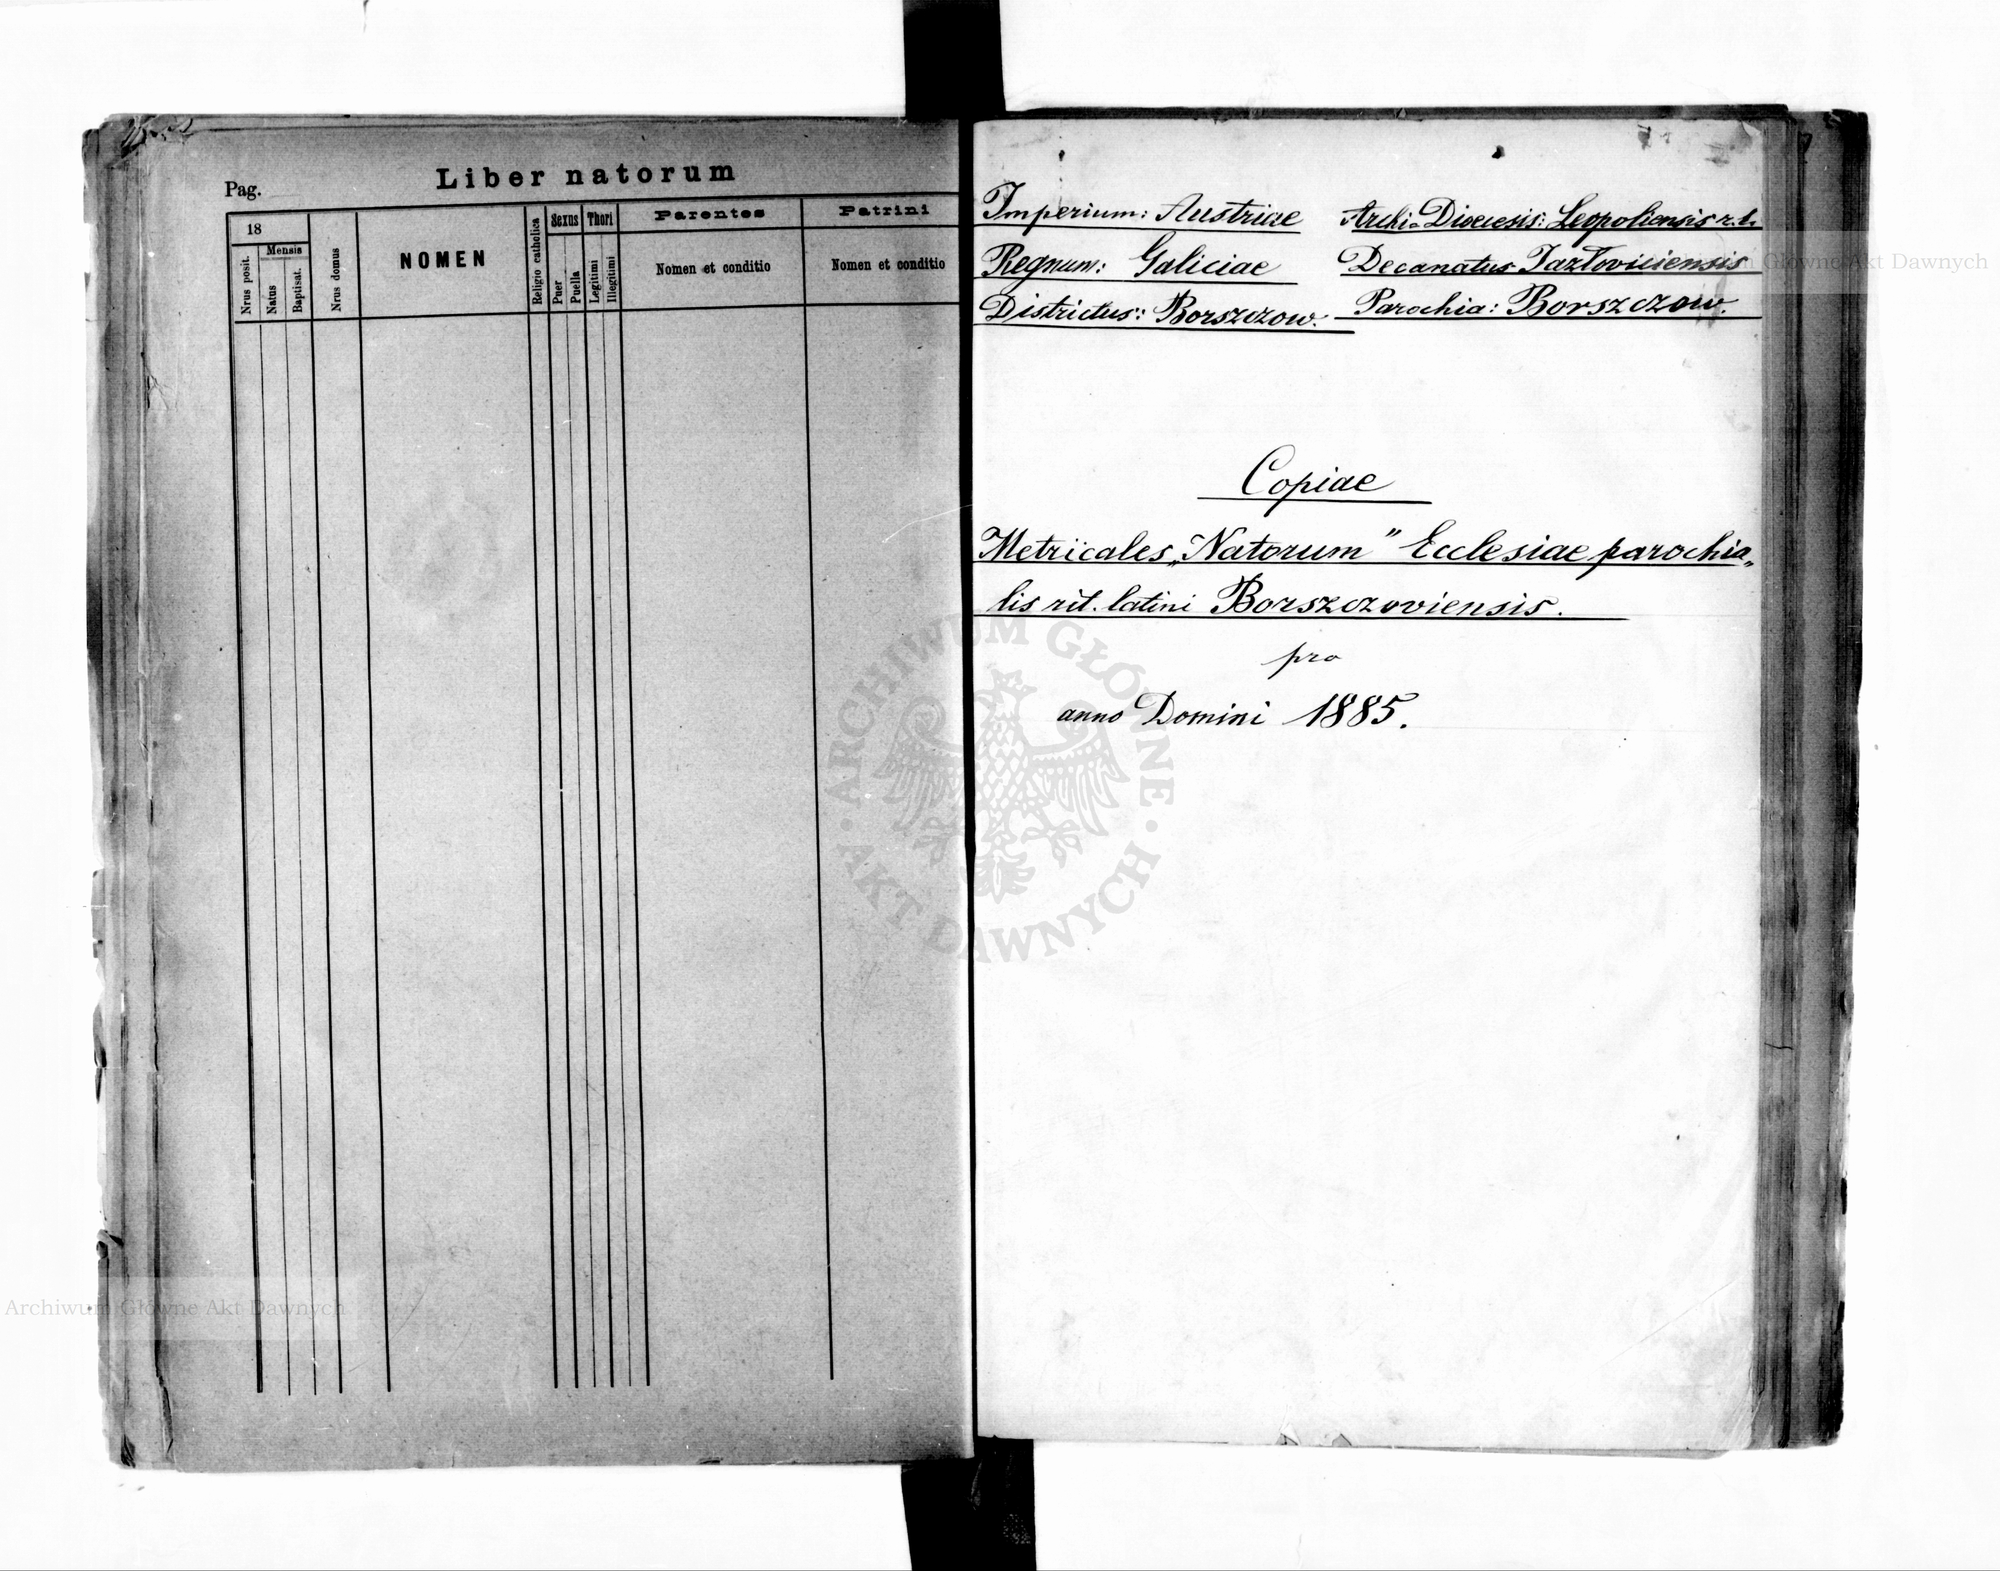 Pag.
Liber natorum
18
Mensis
Nrus posit.
Natus
Baptisat.
Nrus domus
NOMEN
Religio catholica
Sexus
Puer
Puella
Thori
Legitimi
Illegitimi
Parentes
Nomen et conditio
Patrini
Nomen et conditio
Imperium: Austriae
Regnum: Galiciae
Districtus: Borszczow.
Archi-Dioecesis: Leopoliensis r. l.
Decanatus Jazłoviciensis
Parochia: Borszczow.
Copiae
Metricales „Natorum" Ecclesiae parochia„
lis rit. latini Borszczoviensis.
pro
anno Domini 1885.
ARCHIWUM GŁÓWNE AKT DAWNYCH
Archiwum Główne Akt Dawnych
Archiwum Główne Akt Dawnych